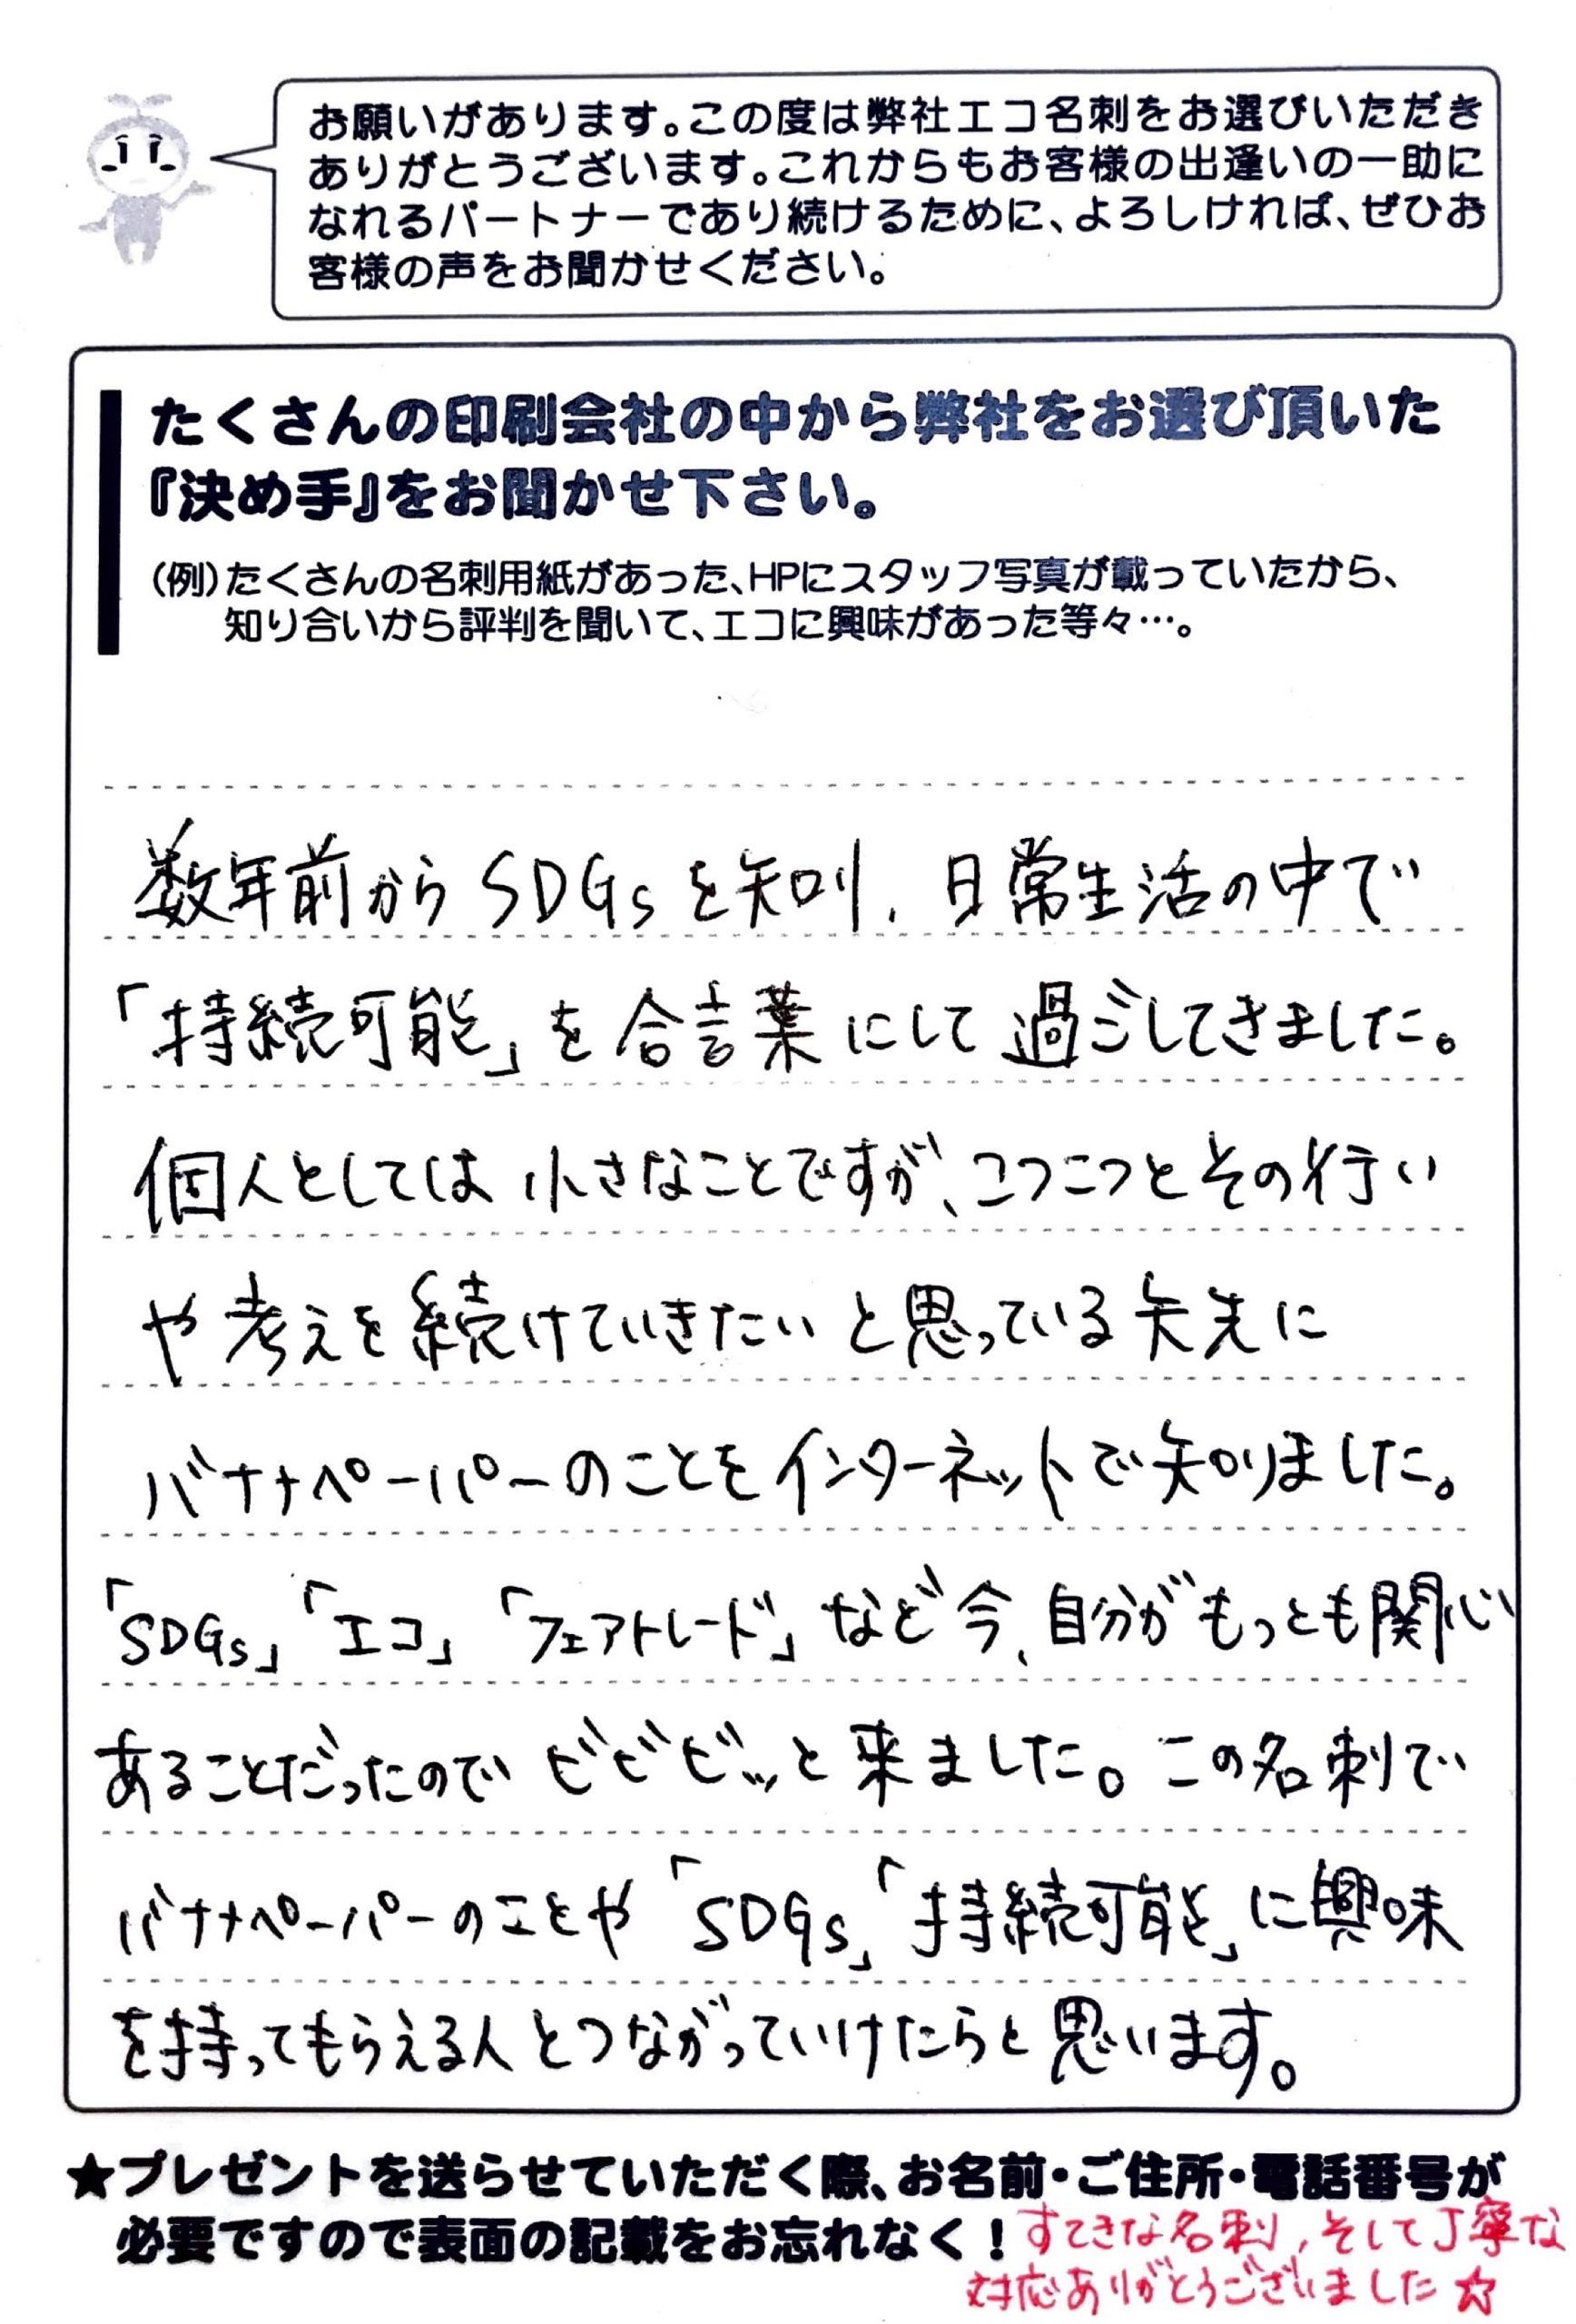 お願いがあります。この度は弊社エコ名刺をお選びいただき
ありがとうございます。これからもお客様の出逢いの一助に
なれるパートナーであり続けるために、よろしければ、ぜひお
客様の声をお聞かせください。
たくさんの印刷会社の中から弊社をお選び頂いた
『決め手』をお聞かせ下さい。
(例)たくさんの名刺用紙があった、HPにスタッフ写真が載っていたから、
知り合いから評判を聞いて、エコに興味があった等々…。
数年前からSDGsを知り、日常生活の中で
「持続可能」を合言葉にして過ごしてきました。
個人としては小さなことですが、コツコツとその行い
や考えを続けていきたいと思っている矢先に
バナナペーパーのことをインターネットで知りました。
「SDGs」「エコ」「フェアトレード」など今、自分がもっとも関心
あることだったのでビビビッと来ました。この名刺で
バナナペーパーのことや「SDGs」「持続可能」に興味
を持ってもらえる人とつながっていけたらと思います。
★プレゼントを送らせていただく際、お名前・ご住所・電話番号が
必要ですので表面の記載をお忘れなく！
すてきな名刺、そして丁寧な
対応ありがとうございました☆